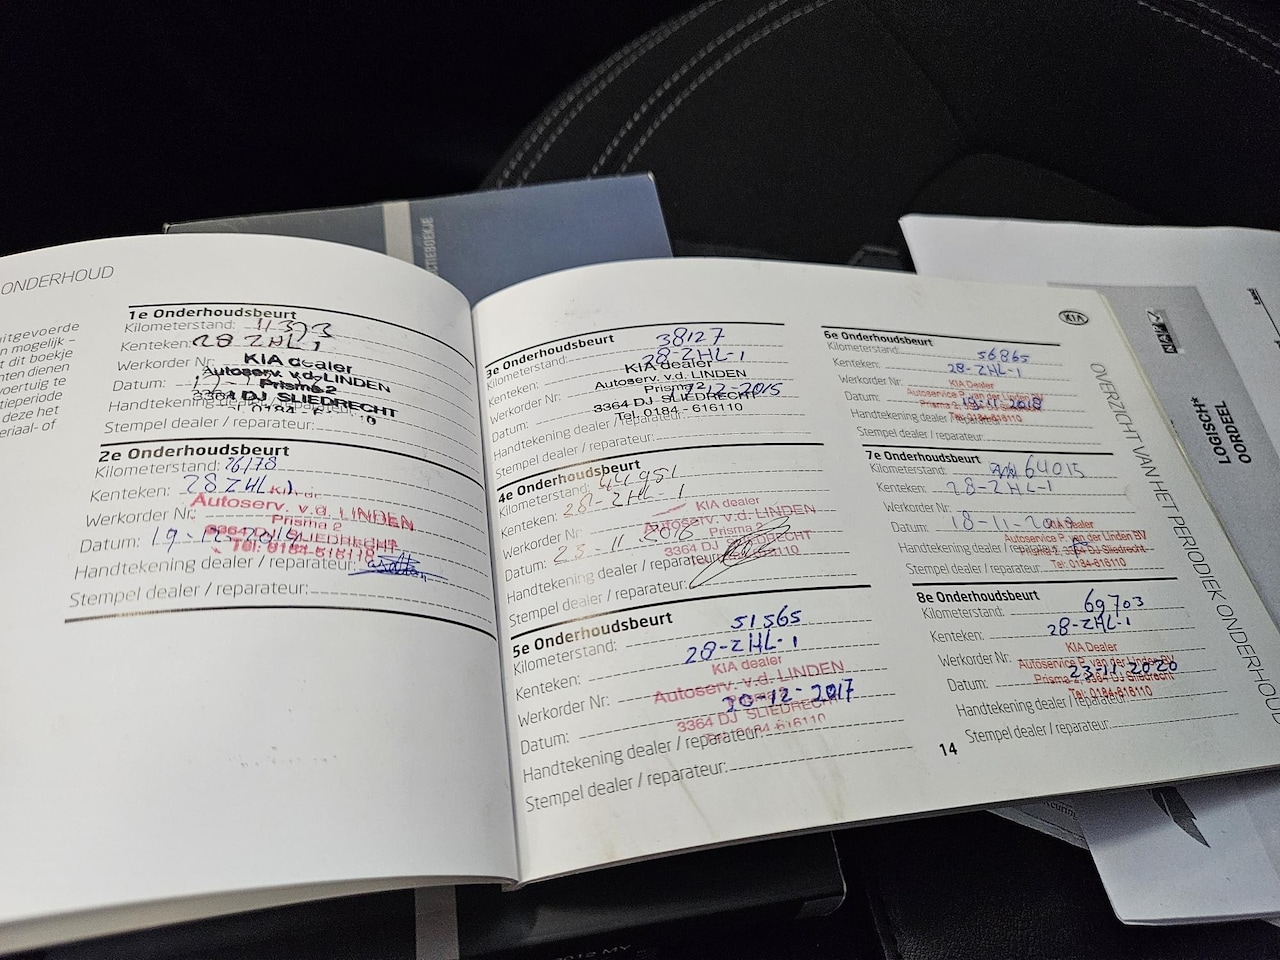 ONDERHOUD
uitgevoerde
n mogelijk –
t dit boekje
nten dienen
voertuig te
tieperiode
deze het
eriaal- of
1e Onderhoudsbeurt
Kilometerstand: 11393
Kenteken: 28 ZHL-1
Werkorder Nr:
KIA dealer
Autoserv. v.d. LINDEN
Datum:
Prisma 2
3364 DJ SLIEDRECHT
Handtekening dealer / reparateur:
Stempel dealer / reparateur:
2e Onderhoudsbeurt
Kilometerstand: 26178
Kenteken: 28 ZHL 1
Werkorder Nr:
Autoserv. v.d. LINDEN
Prisma 2
Datum: 19-
3364 DJ SLIEDRECHT
Tel. 0184-616110
Handtekening dealer / reparateur:
Stempel dealer / reparateur:
3e Onderhoudsbeurt
Kilometerstand: 38127
Kenteken: 28-ZHL-1
KIA dealer
Werkorder Nr:
Autoserv. v.d. LINDEN
Prisma 2
Datum: 12-2015
3364 DJ SLIEDRECHT
Tel. 0184 - 616110
Handtekening dealer / reparateur:
Stempel dealer / reparateur:
4e Onderhoudsbeurt
Kilometerstand: 44951
Kenteken: 28-ZHL-1
KIA dealer
Werkorder Nr:
Autoserv. v.d. LINDEN
Prisma 2
Datum: 25-11-2016
3364 DJ SLIEDRECHT
Tel. 0184-616110
Handtekening dealer / reparateur:
Stempel dealer / reparateur:
5e Onderhoudsbeurt
Kilometerstand: 51565
Kenteken: 28-ZHL-1
KIA dealer
Werkorder Nr:
Autoserv. v.d. LINDEN
Datum: 20-12-2017
3364 DJ SLIEDRECHT
Tel. 0184-616110
Handtekening dealer / reparateur:
Stempel dealer / reparateur:
6e Onderhoudsbeurt
Kilometerstand: 56865
Kenteken: 28-ZHL-1
Werkorder Nr:
KIA Dealer
Autoservice P. van der Linden BV
Datum: 19-11-2018
Prisma 2, 3364 DJ Sliedrecht
Tel: 0184-616110
Handtekening dealer / reparateur:
Stempel dealer / reparateur:
7e Onderhoudsbeurt
Kilometerstand: 64015
Kenteken: 28-ZHL-1
Werkorder Nr:
Datum: 18-11-2019
KIA Dealer
Autoservice P. van der Linden BV
Handtekening dealer / reparateur:
Prisma 2, 3364 DJ Sliedrecht
Tel: 0184-616110
Stempel dealer / reparateur:
8e Onderhoudsbeurt
Kilometerstand: 69703
Kenteken: 28-ZHL-1
KIA Dealer
Werkorder Nr:
Autoservice P. van der Linden BV
Datum: 23-11-2020
Prisma 2, 3364 DJ Sliedrecht
Tel: 0184-616110
Handtekening dealer / reparateur:
Stempel dealer / reparateur:
14
KIA
OVERZICHT VAN HET PERIODIEK ONDERHOUD
CTIEBOEKJE
LOGISCH*
OORDEEL